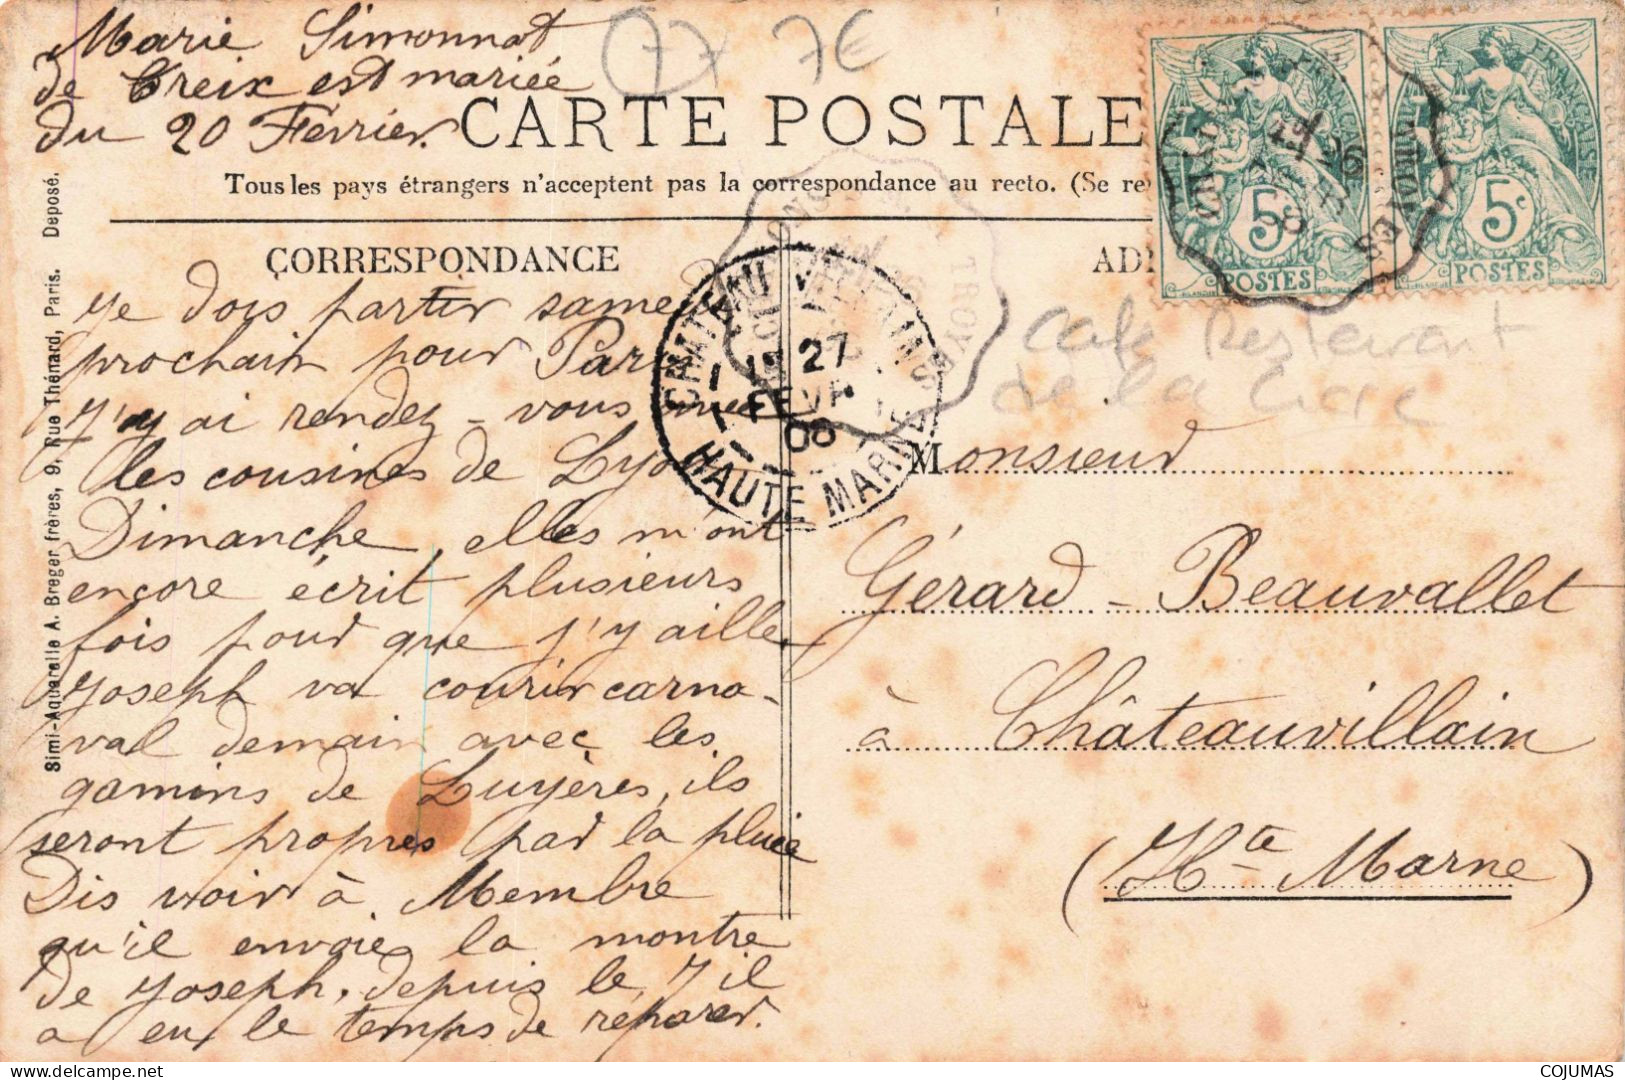 Marie Simonnot
de Creix est mariée
du 20 Février.
77 7€
CARTE POSTALE
Tous les pays étrangers n'acceptent pas la correspondance au recto. (Se re
CORRESPONDANCE
Je dois partir same
prochain pour Par
J'y ai rendez-vous avec
les cousines de Lyon
Dimanche, elles m'ont
encore écrit plusieurs
fois pour que j'y aille
Joseph va courir carna-
val demain avec les
gamins de Luyères, ils
seront propres par la pluie
Dis voir à Membre
qu'il envoie la montre
de Joseph, depuis le 7 il
a eu le temps de réparer.
Simi-Aquarelle A. Breger frères, 9, Rue Thénard, Paris. Déposé.
CHATEAU VILLAIN
27
FEVR
08
HAUTE MARNE
TROYES
RÉPUBLIQUE FRANÇAISE
5c
POSTES
FRANÇAISE
5c
POSTES
26
08
TROYES
AD
Café Restaurant
de la Gare
Monsieur
Gérard-Beauvallet
à Châteauvillain
(Hte Marne)
COJUMAS